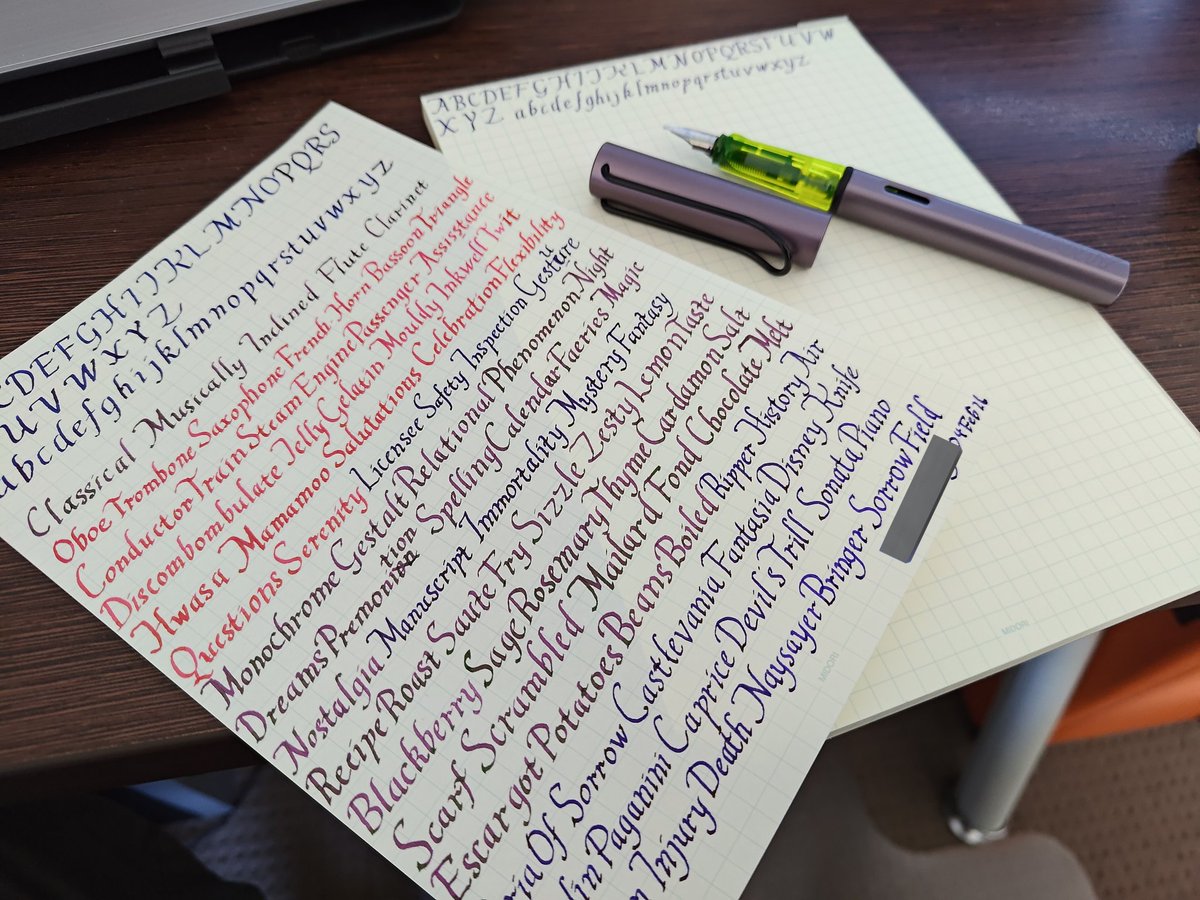 CDEFGHIJKLMNOPQRS
UVWXYZ
abcdefghijklmnopqrstuvwxyz
Classical Musically Inclined Flute Clarinet
Oboe Trombone Saxophone French Horn Bassoon Triangle
Conductor Train Steam Engine Passenger Assisstance
Discombombulate Jelly Gelatin Mouldy Inkwell Twit
Hwasa Mamamoo Salutations Celebration Flexibility
Questions Serenity Licensee Safety Inspection Gesture
Monochrome Gestalt Relational Phenomenon Night
Dreams Premonition Spelling Calendar Faeries Magic
Nostalgia Manuscript Immortality Mystery Fantasy
Recipe Roast Saute Fry Sizzle Zesty Lemon Taste
Blackberry Sage Rosemary Thyme Cardamon Salt
Scarf Scrambled Mailard Fond Chocolate Melt
Escargot Potatoes Beans Boiled Ripper History Air
Of Sorrow Castlevania Fantasia Disney Knife
Paganini Caprice Devil's Trill Sonata Piano
Injury Death Naysayer Bringer Sorrow Field
MIDORI
ABCDEFGHIJKLMNOPQRSTUVW
XYZ abcdefghijklmnopqrstuvwxyz
MIDORI